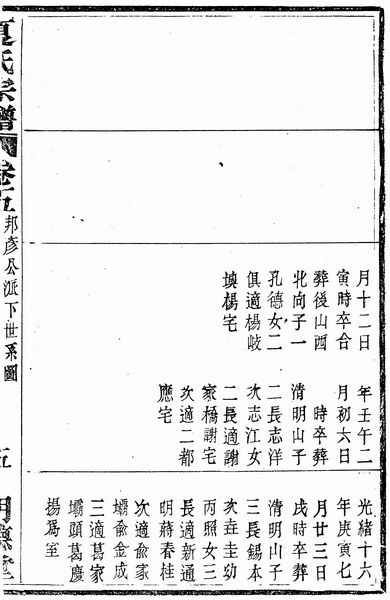 月十二日
寅時卒合
葬後山酉
牝向子一
孔德女二
俱適楊岐
塽楊宅
年壬午二
月初六日
時卒葬
清明山子
二長志洋
次志江女
二長適謝
家橋謝宅
次適二都
應宅
光緒十六
年庚寅七
月廿三日
戌時卒葬
清明山子
三長錫本
次垚圭幼
丙照女三
長適新通
明蔣春桂
次適俞家
壩俞金成
三適葛家
壩頭葛慶
揚為室
夏氏宗譜
卷五
邦彥公派下世系圖
五